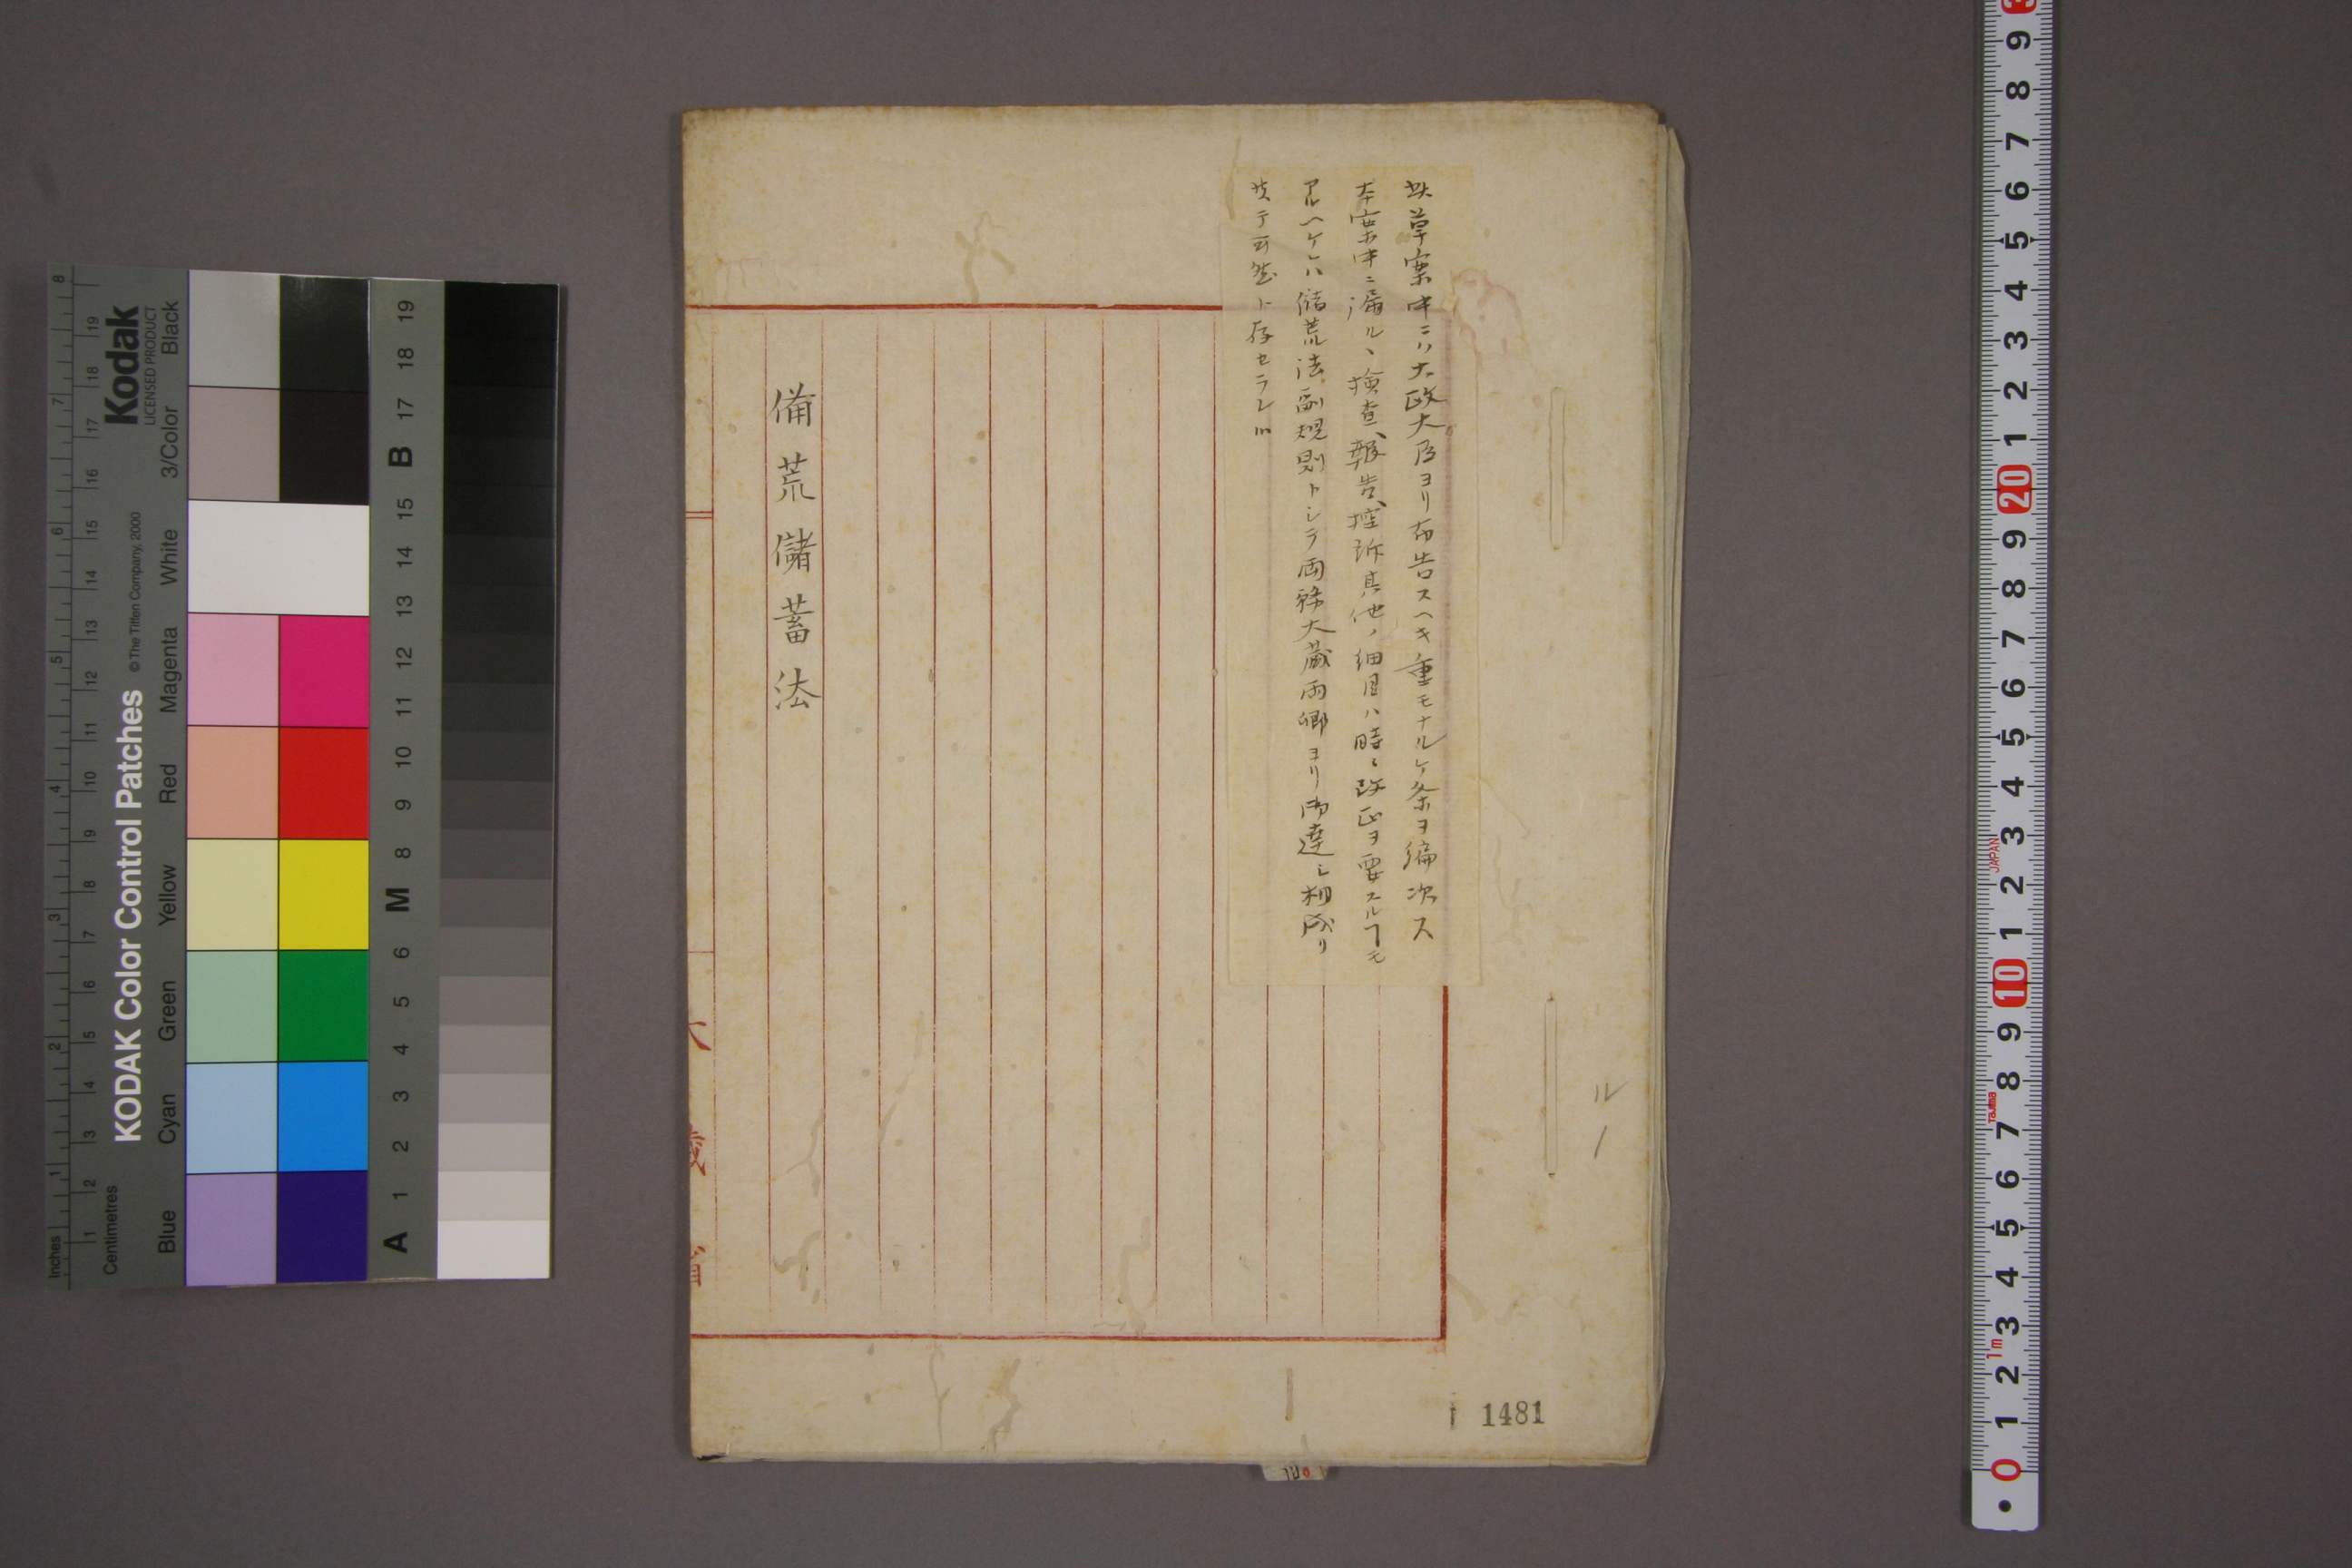 此草案中ニハ大政大臣ヨリ布告スヘキ重モナルケ条ヲ編次ス
本案中ニ漏ル、検査、報告、控訴其他ノ細目ハ時々改正ヲ要スルヿモ
アルヘケレハ儲荒法副規則トシテ内務大蔵両卿ヨリ御達シ相成リ
然ト存セラレ
備荒儲蓄法
大蔵省
1481
KODAK Color Control Patches
© The Tiffen Company, 2000
Kodak
LICENSED PRODUCT
Inches
Centimetres
Blue Cyan Green Yellow Red Magenta White 3/Color Black
A 1 2 3 4 5 6 M 8 9 10 11 12 13 14 15 B 17 18 19
JAPAN
Tajima
1m